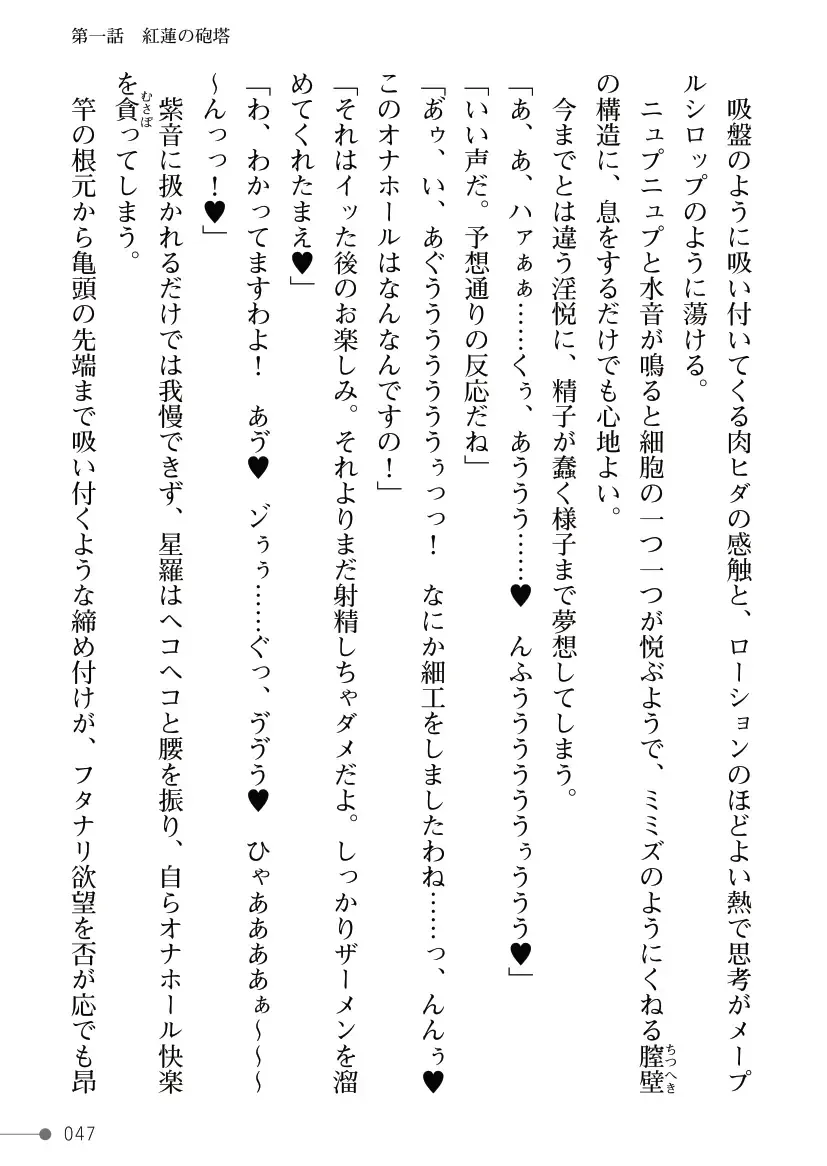 第一話　紅蓮の砲塔
　吸盤のように吸い付いてくる肉ヒダの感触と、ローションのほどよい熱で思考がメープ
ルシロップのように蕩ける。
　ニュプニュプと水音が鳴ると細胞の一つ一つが悦ぶようで、ミミズのようにくねる膣壁
ちつへき
の構造に、息をするだけでも心地よい。
　今までとは違う淫悦に、精子が蠢く様子まで夢想してしまう。
「あ、あ、ハァぁぁ……くぅ、あううう……♥　んふうううううううぅううう♥」
「いい声だ。予想通りの反応だね」
「あ゙ゥ、い、あぐうううううううぅっっ！　なにか細工をしましたわね……っ、んんぅ♥
このオナホールはなんなんですの！」
「それはイッた後のお楽しみ。それよりまだ射精しちゃダメだよ。しっかりザーメンを溜
めてくれたまえ♥」
「わ、わかってますわよ！　あゔ♥　ゾぅぅ……ぐっ、ゔゔう♥　ひゃああああぁ～～～
～んっっ！♥」
　紫音に扱かれるだけでは我慢できず、星羅はヘコヘコと腰を振り、自らオナホール快楽
を貪ってしまう。
むさぼ
　竿の根元から亀頭の先端まで吸い付くような締め付けが、フタナリ欲望を否が応でも昂
047